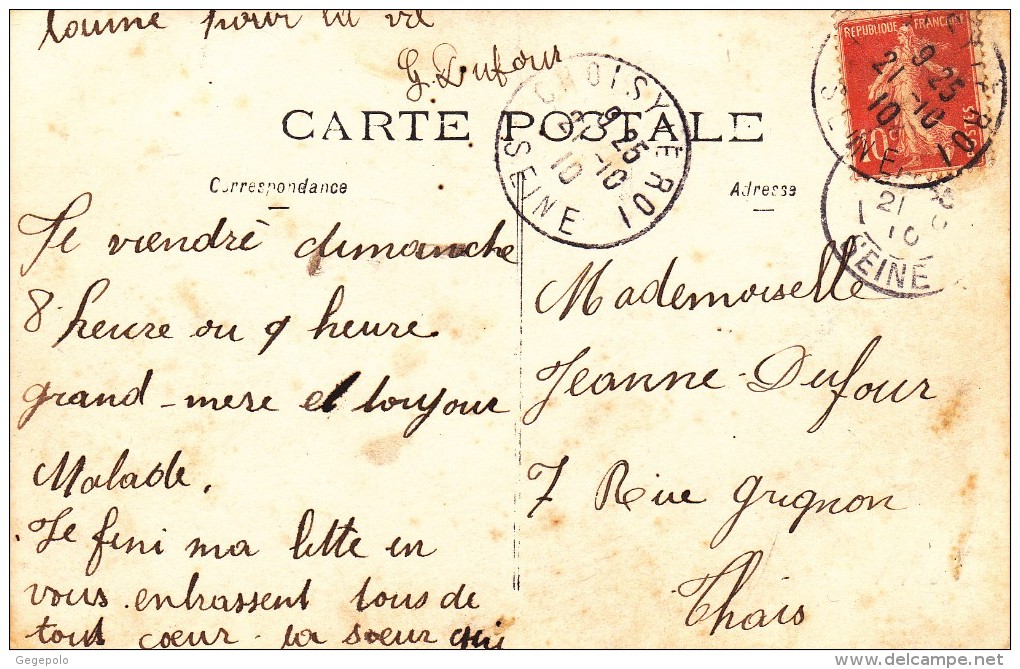 tourne pour la vi
G. Dufour
CARTE POSTALE
Correspondance
Adresse
Je viendrè dimanche
8 heure ou 9 heure
grand-mere et toujour
Malade.
Je fini ma lette en
vous enbrassent tous de
tout coeur la soeur qui
Mademoiselle
Jeanne Dufour
7 Rue Grignon
Thais
CHOISY-LE-ROI
9 25
21 -10
10
SEINE
REPUBLIQUE FRANÇAISE
10c
POSTES
9 25
21 -10
10
SEINE
21
10
SEINE
Gegepolo
delcampe.net